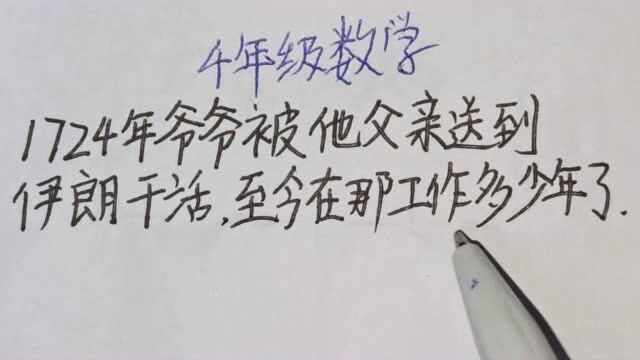 4年级数学
1724年爷爷被他父亲送到
伊朗干活,至今在那工作多少年了.